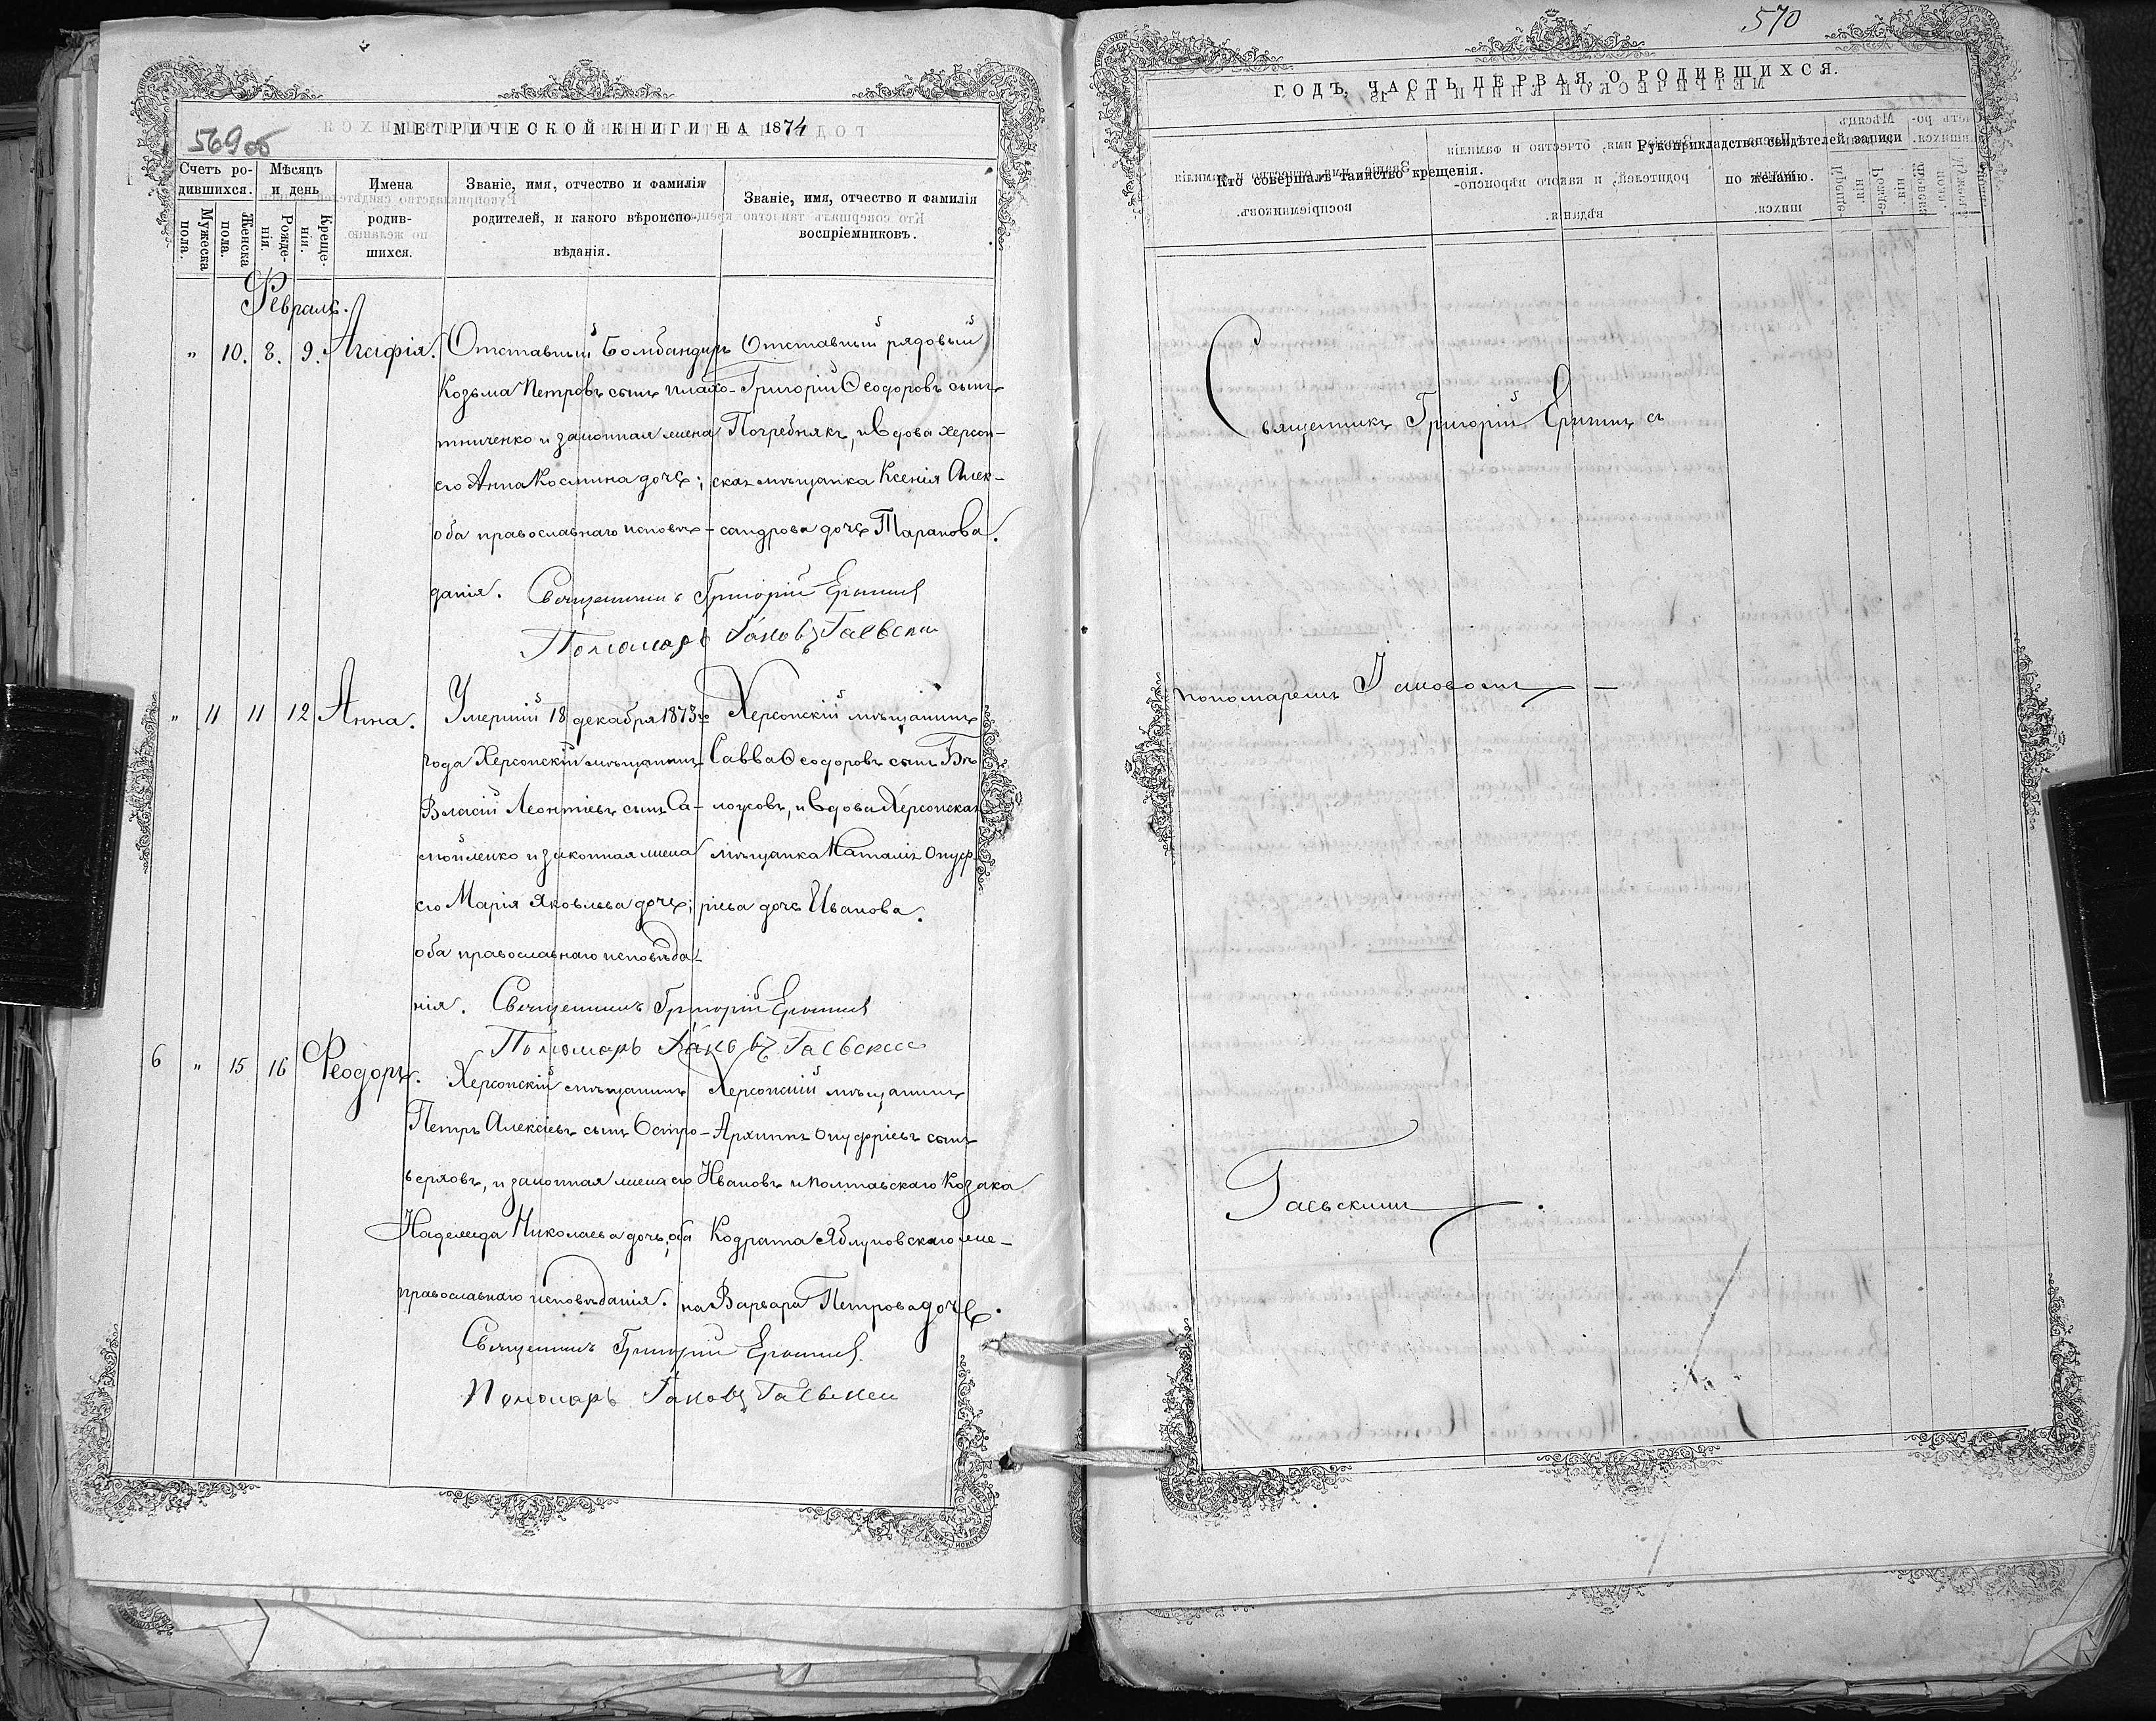 569 об
МЕТРИЧЕСКОЙ КНИГИ НА 1874
Счетъ ро-
дившихся.
Мужеска
пола.
Женска
пола.
Мѣсяцъ
и день
Рожде-
нія.
Креще-
нія.
Имена
родив-
шихся.
Званіе, имя, отчество и фамилія
родителей, и какого вѣроиспо-
вѣданія.
Званіе, имя, отчество и фамилія
воспріемниковъ.
Февраль.
" 10. 8. 9. Агафія.
Отставный Бомбандиръ
Козьма Петровъ сынъ Плахо-
тниченко и законная жена
его Анна Космина дочь;
оба православнаго исповѣ-
данія.
Отставный рядовый
Григорій Ѳеодоровъ сынъ
Погребнякъ, и вдова Херсон-
ская мѣщанка Ксенія Алек-
сандрова дочь Таранова.
Священникъ Григорій
Пономарь Іаковъ Гаевскій
" 11 11 12 Анна.
Умершій 18 декабря 1873го
года Херсонскій мѣщанинъ
Власій Леонтіевъ сынъ Са-
мойленко и законная жена
его Марія Яковлева дочь;
оба православнаго исповѣда-
нія.
Херсонскій мѣщанинъ
Савва Ѳеодоровъ сынъ Бѣ-
лоусовъ, и вдова Херсонская
мѣщанка Наталія Онуф-
ріева дочь Иванова.
Священникъ Григорій
Пономарь Іаковъ Гаевскій
6 " 15 16 Феодоръ.
Херсонскій мѣщанинъ
Петръ Алексіевъ сынъ Остро-
верховъ, и законная жена его
Надежда Николаева дочь, оба
православнаго исповѣданія.
Херсонскій мѣщанинъ
Архиппъ Онуфріевъ сынъ
Ивановъ и полтавскаго козака
Кодрата Яблуновскаго же-
на Варвара Петрова дочь.
Священникъ Григорій
Пономарь Іаковъ Гаевскій
570
ГОДЪ, ЧАСТЬ ПЕРВАЯ, О РОДИВШИХСЯ.
Кто совершалъ таинство крещенія.
Рукоприкладство свидѣтелей записи
по желанію.
Священникъ Григорій съ
пономаремъ Іаковомъ —
Гаевскимъ.